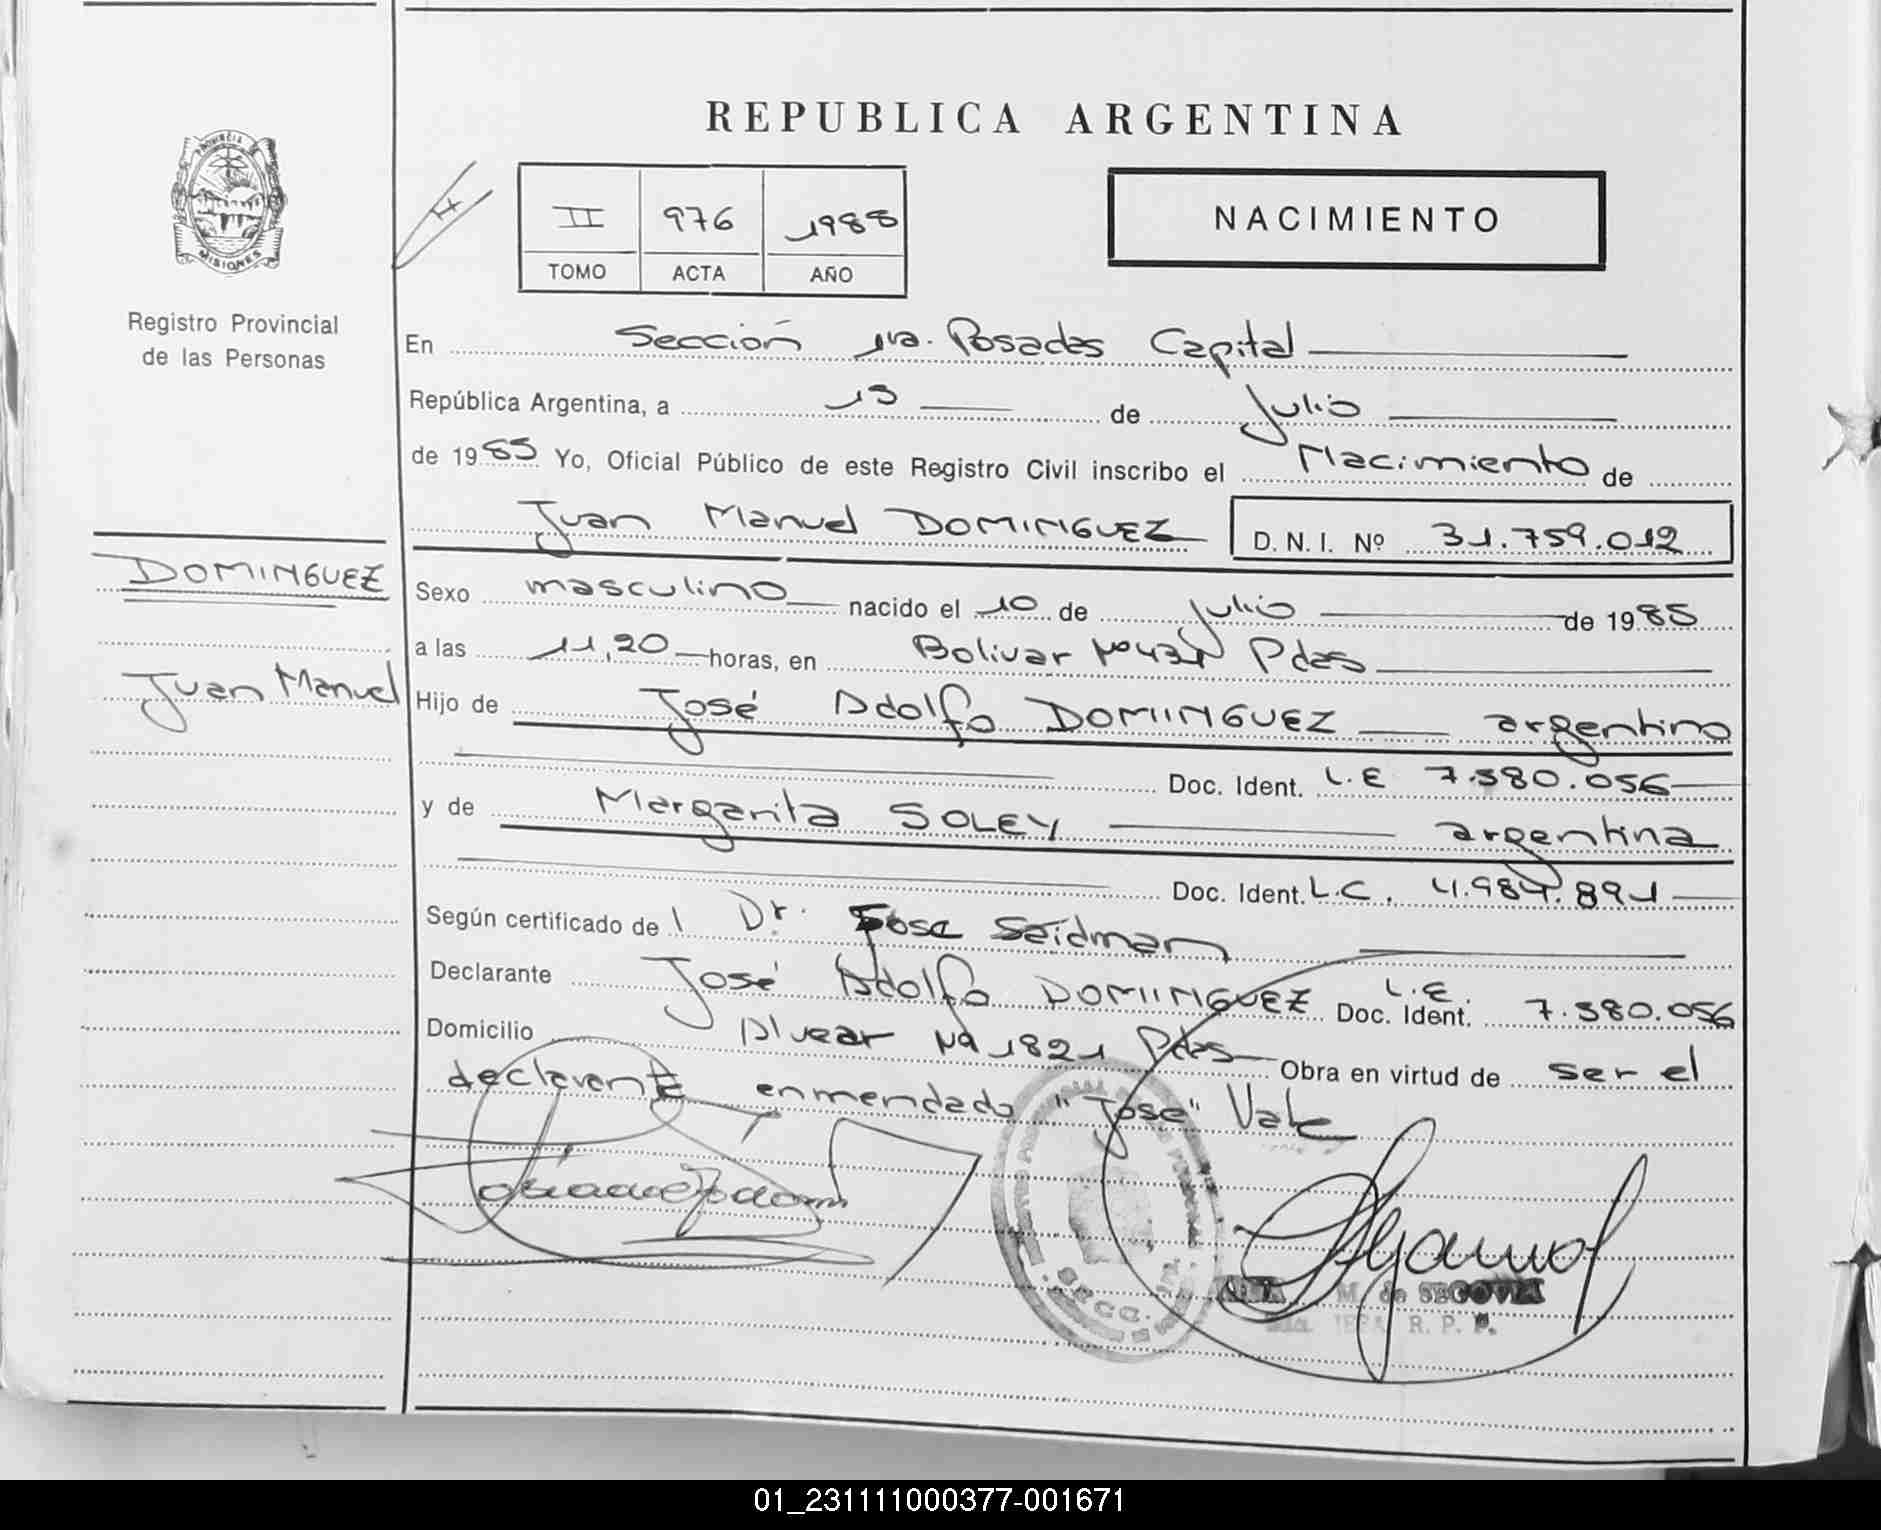 REPUBLICA ARGENTINA
PROVINCIA DE
MISIONES
Registro Provincial
de las Personas
II 976 1988
TOMO ACTA AÑO
NACIMIENTO
En Sección 1ra. Posadas Capital
República Argentina, a 15 de Julio
de 1985 Yo, Oficial Público de este Registro Civil inscribo el Nacimiento de
Juan Manuel DOMINGUEZ D. N. I. Nº 31.759.012
DOMINGUEZ
Juan Manuel
Sexo masculino nacido el 10 de julio de 1985
a las 11,20 horas, en Bolivar Nº 434 Pdas
Hijo de José Adolfo DOMINGUEZ argentino
Doc. Ident. L.E 7.580.056
y de Margarita SOLEY argentina
Doc. Ident. L.C. 4.984.891
Según certificado de l Dr. Jose Seidman
Declarante José Adolfo DOMINGUEZ Doc. Ident. L.E. 7.580.056
Domicilio Alvear Nº 1821 Pdas Obra en virtud de ser el
declarante enmendado "Jose" Vale
SECC.
M. de SEGOVIA
JEFA R. P. P.
01_231111000377-001671